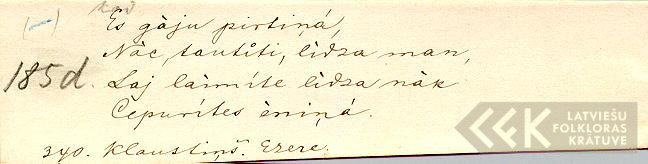 (—)
Es gàju pirtiņá,
Nàc, tautîti, lìdza man,
185d. Laj làimíte lìdza nàk
Cepurítes èniņá.
340. Klaustiņš. Ezere.
LATVIEŠU
FOLKLORAS
KRĀTUVE